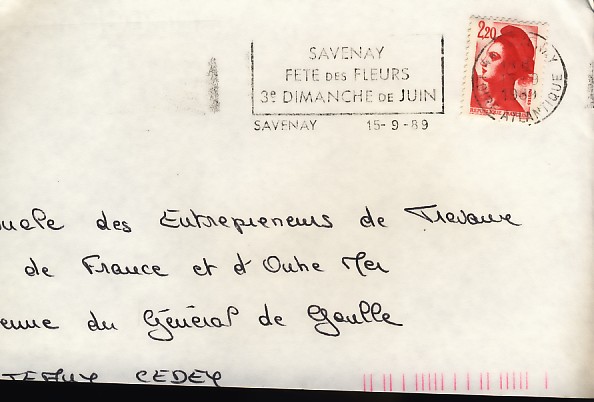 SAVENAY
FETE DES FLEURS
3e DIMANCHE DE JUIN
SAVENAY 15-9-89
2,20
REPUBLIQUE FRANCAISE
ATLANTIQUE
des Entrepreneurs de Travaux
de France et d'Outre Mer
du Général de Gaulle
CEDEX